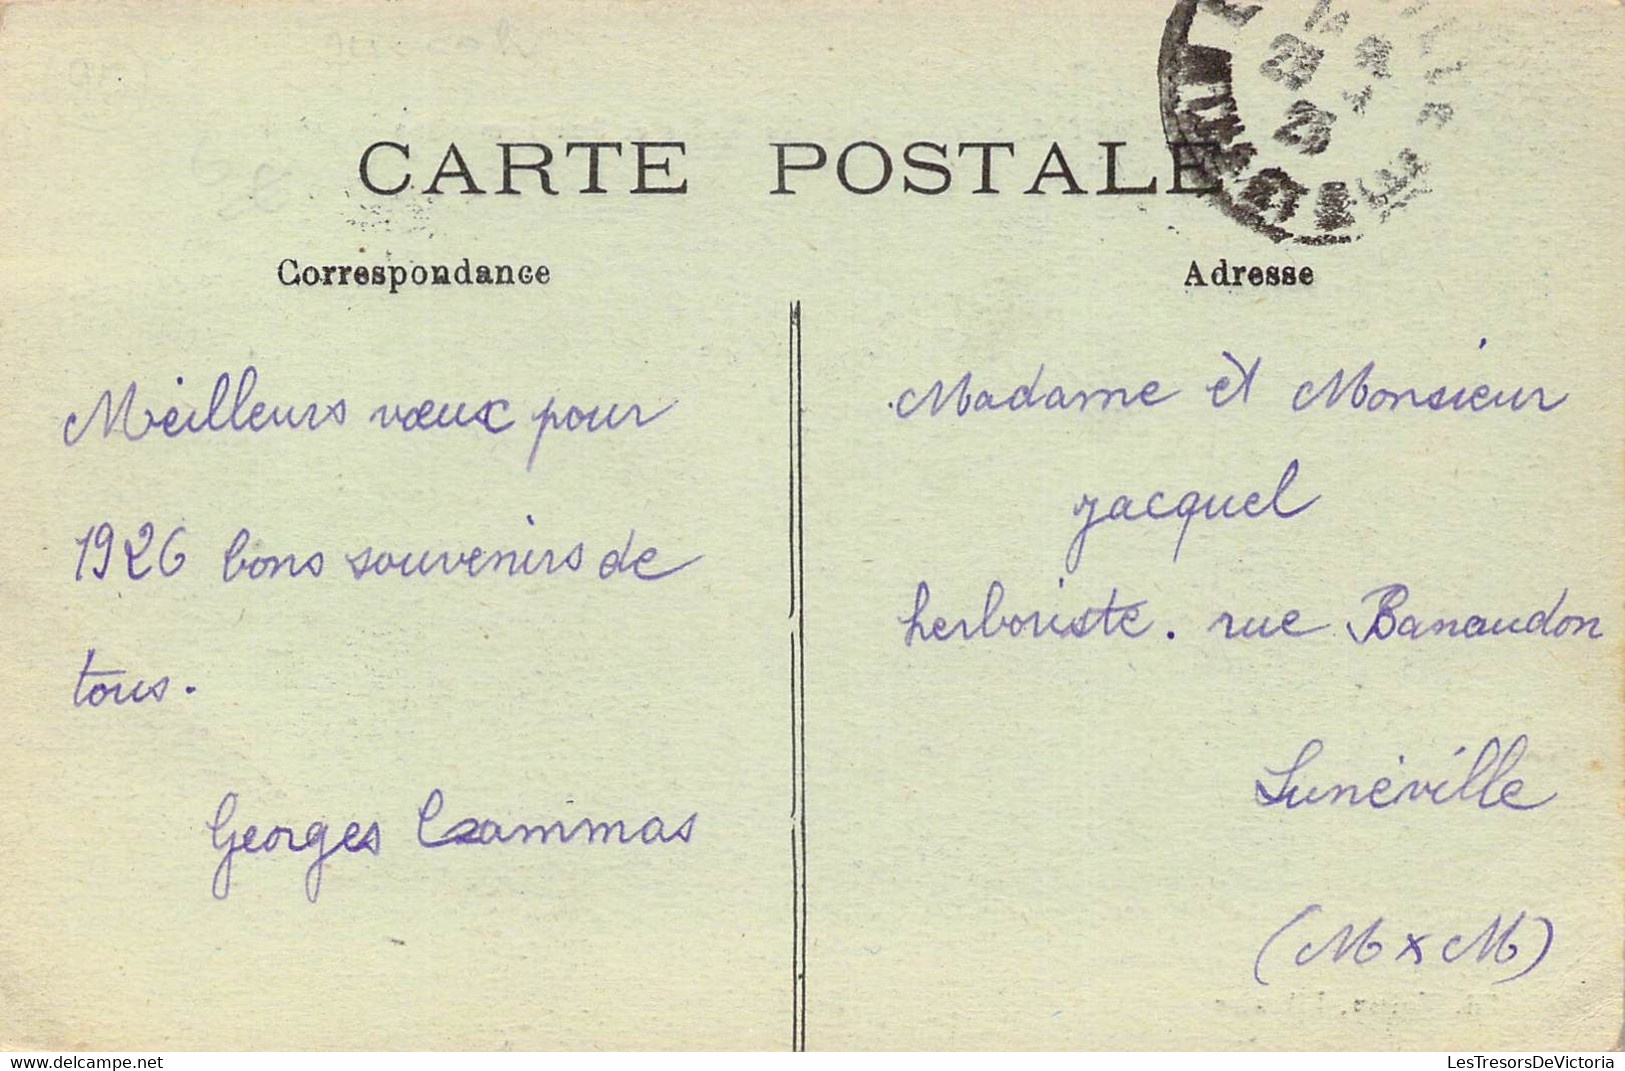 CARTE POSTALE
Correspondance
Adresse
Meilleurs vœux pour
1926 bons souvenirs de
tous.
Georges
Madame et Monsieur
Jacquel
herboriste. rue Banaudon
Lunéville
(M x M)
LesTresorsDeVictoria